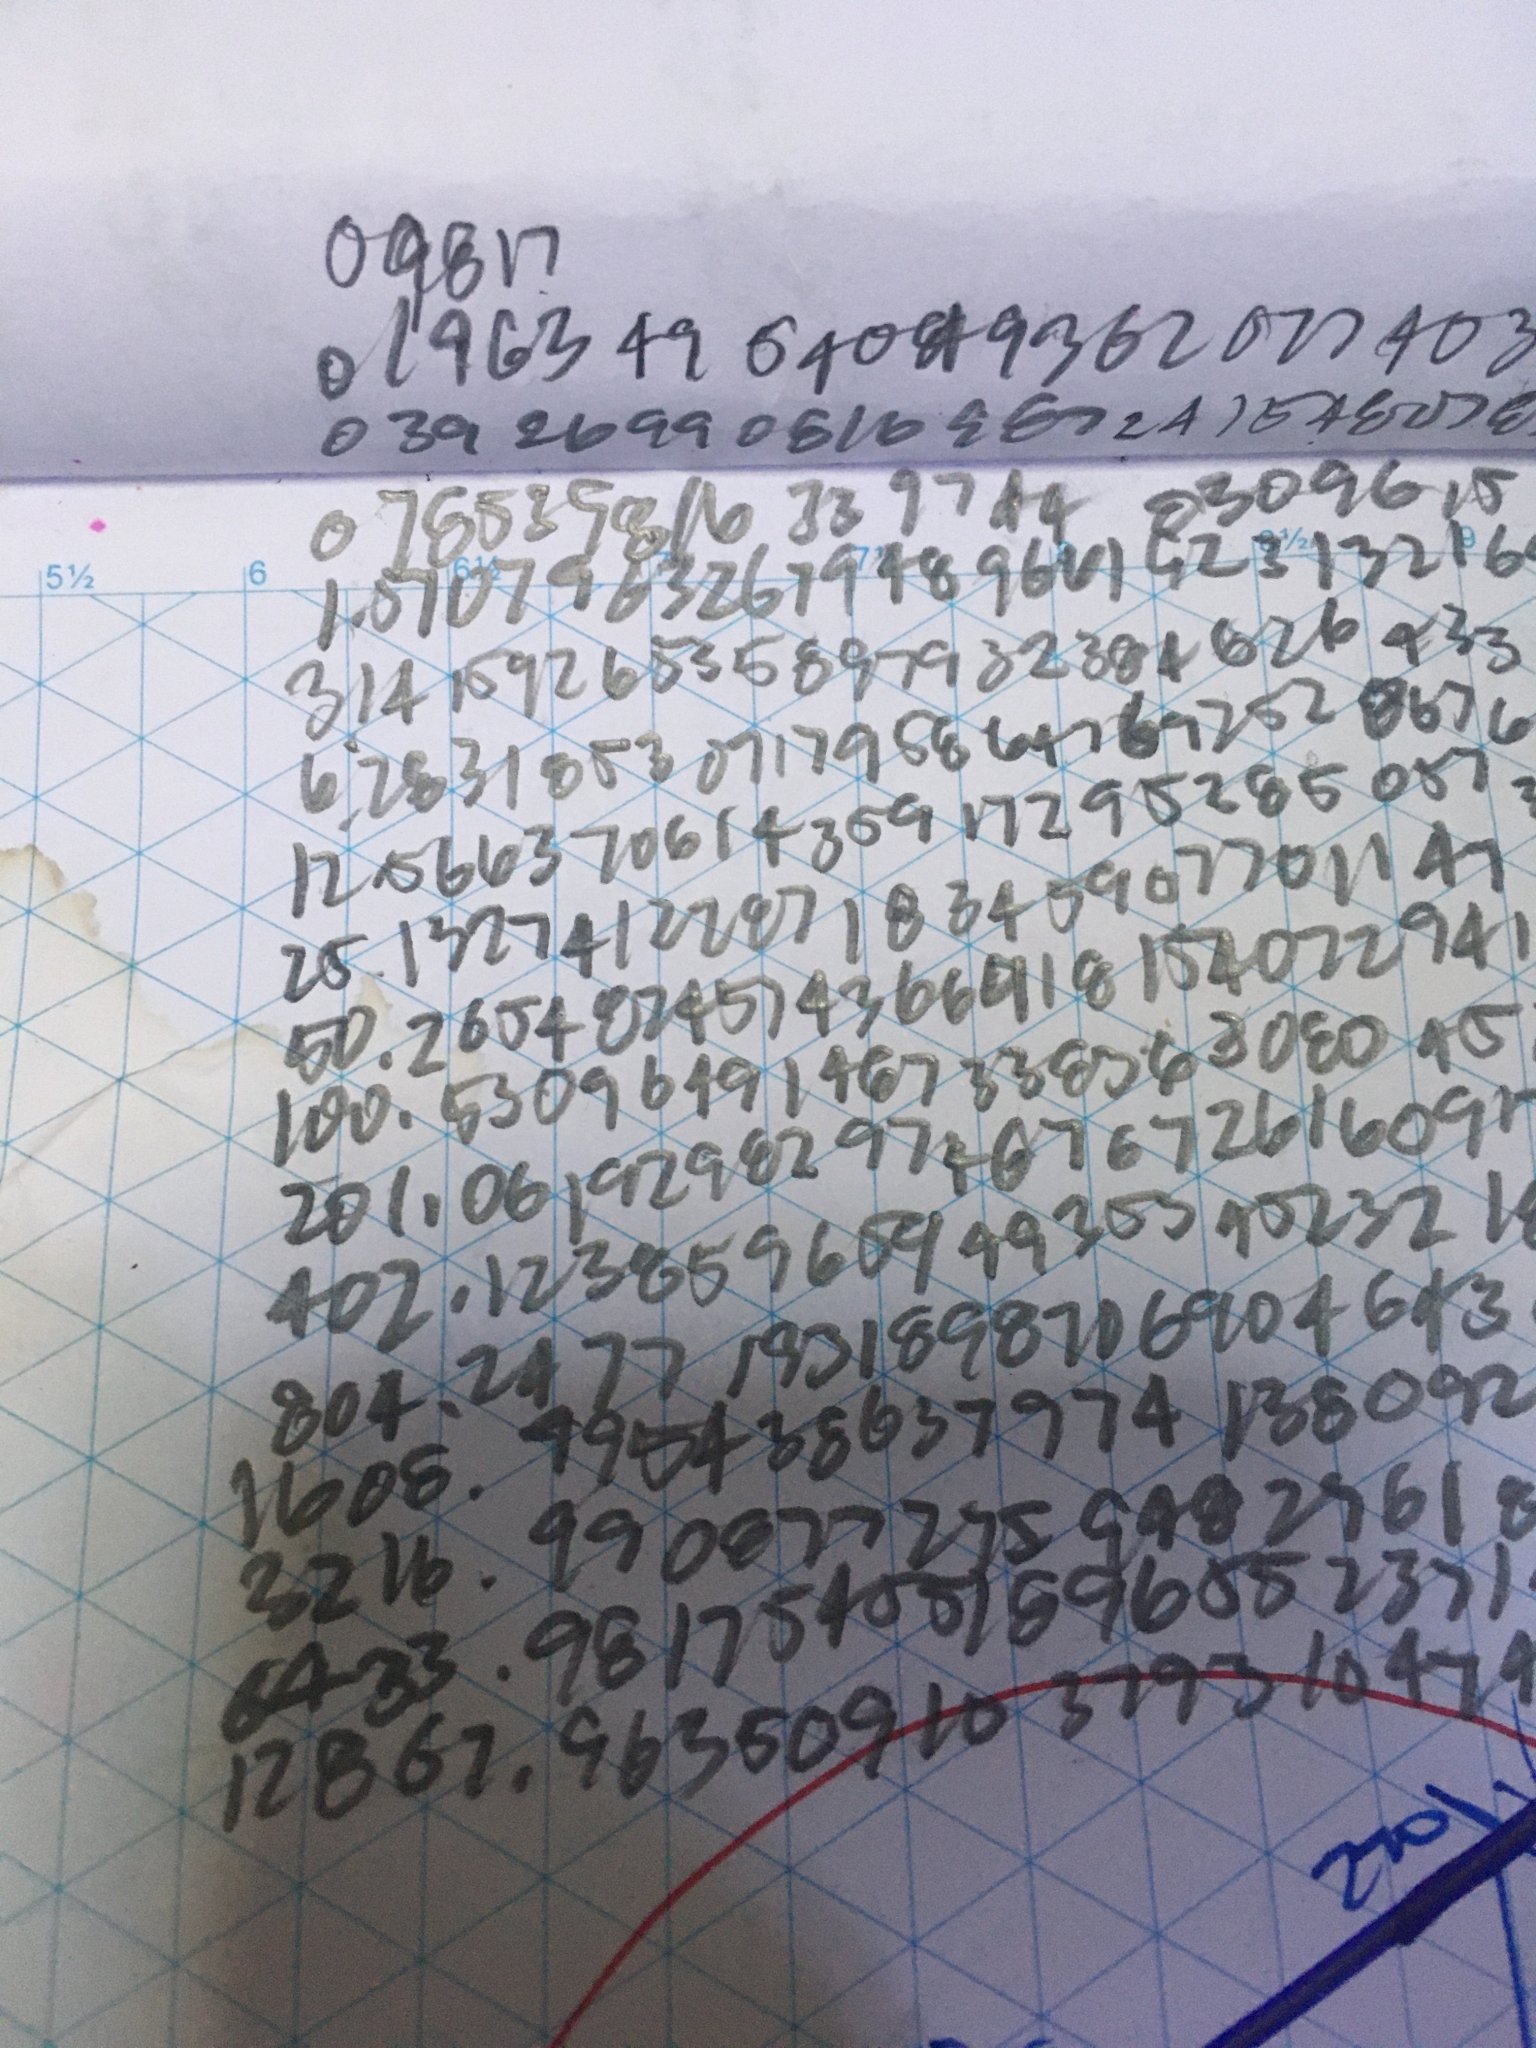 09817
0196349540849362077403
039269908169872415480783
0 785398163397448 3096 15
5½ 6 6½ 7 7½ 8 8½ 9
1.57079632679489661923132169
314159265358979323846264 33
6.28318530717958647692528676
12.566370614359172953850573
25.1327412287183459077011 47
50.26548245743669181540722941
100.53096491487338363080 45
201.06192982974676726161609 17
402.1238596594935345232 18
804.24771931898706904643
1608.49543863797413 8092
3216.990877275948276 18
6433.98175455189655237 1
12867.9635091037931 0479
270